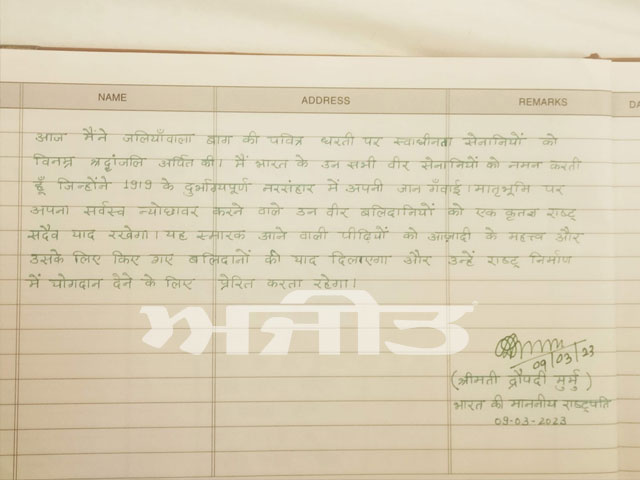 NAME ADDRESS REMARKS DA
आज मैंने जलियाँवाला बाग की पवित्र धरती पर स्वाधीनता सेनानियों को
विनम्र श्रद्धांजलि अर्पित की। मैं भारत के उन सभी वीर सेनानियों को नमन करती
हूँ जिन्होंने 1919 के दुर्भाग्यपूर्ण नरसंहार में अपनी जान गँवाई। मातृभूमि पर
अपना सर्वस्व न्योछावर करने वाले उन वीर बलिदानियों को एक कृतज्ञ राष्ट्र
सदैव याद रखेगा। यह स्मारक आने वाली पीढ़ियों को आज़ादी के महत्त्व और
उसके लिए किए गए बलिदानों की याद दिलाएगा और उन्हें राष्ट्र निर्माण
में योगदान देने के लिए प्रेरित करता रहेगा।
ਅਜੀਤ
09/03/23
(श्रीमती द्रौपदी मुर्मु)
भारत की माननीय राष्ट्रपति
09-03-2023